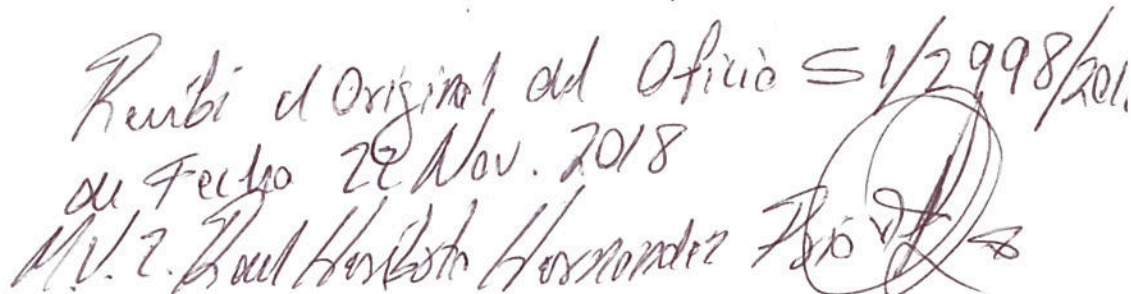 Recibi el Original del Oficio S1/2998/201
de Fecha 22 Nov. 2018
M.V.Z. Raul Heriberto Hernandez